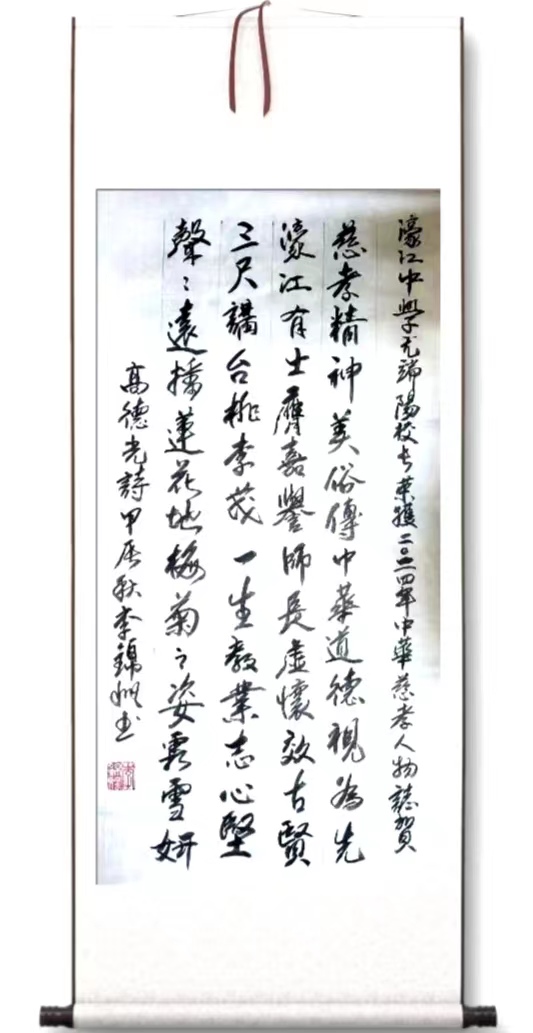 濠江中學尤端陽校長榮獲二〇二四年中華慈孝人物誌賀
慈孝精神美俗傳中華道德視為先
濠江有士膺嘉譽師長虛懷效古賢
三尺講台桃李茂一生教業志心堅
聲〻遠播蓮花地梅菊之姿霜雪妍
高德光詩甲辰秋李錦 書